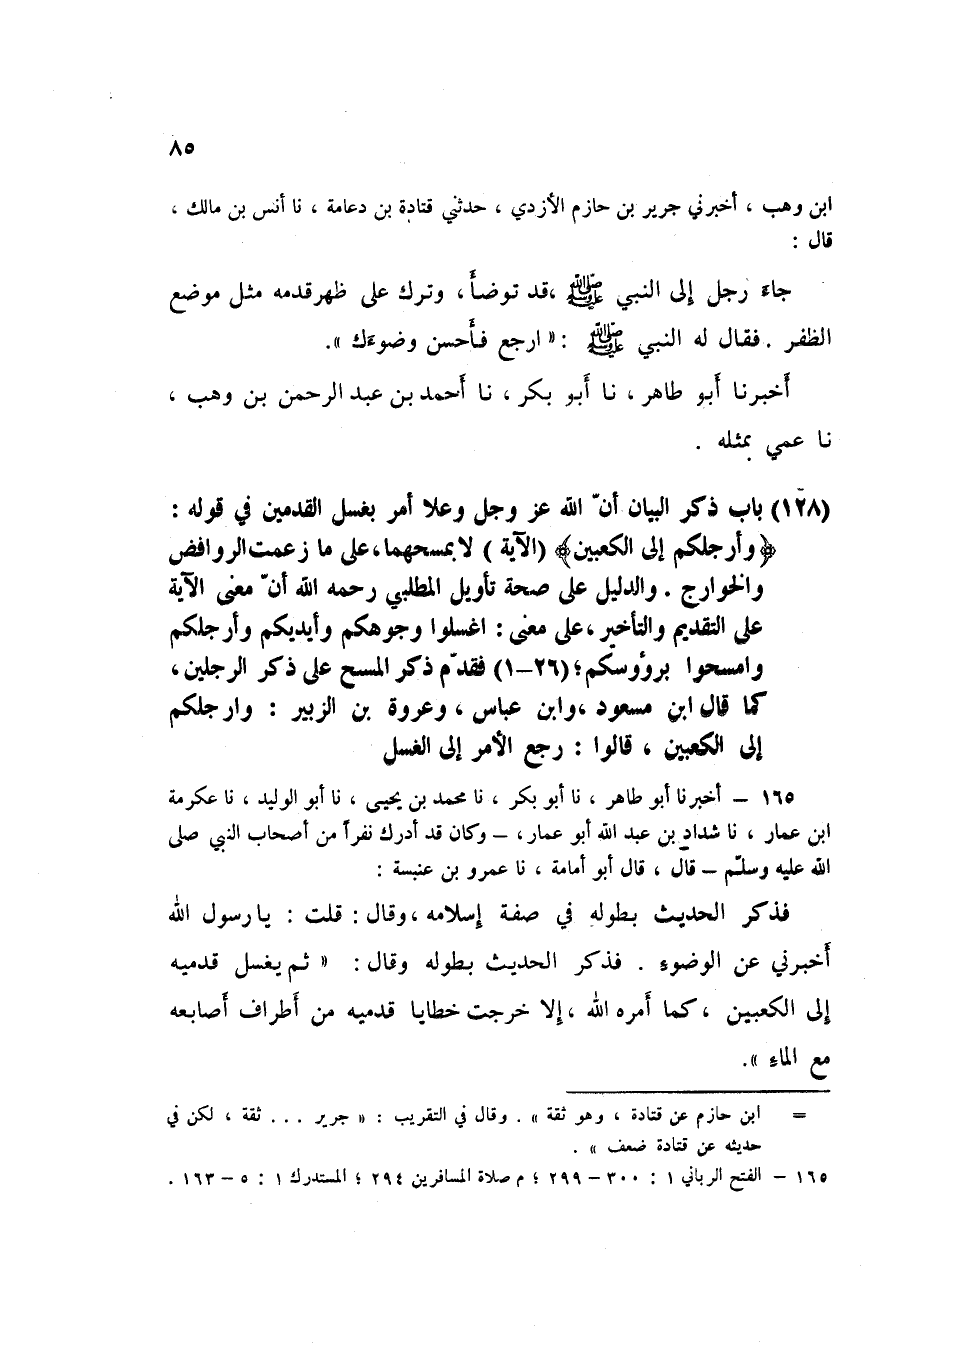 ٨٥
ابن وهب ، أخبرني جرير بن حازم الأزدي ، حدثني قتادة بن دعامة ، نا أنس بن مالك ،
قال :
جاء رجل إلى النبي ﷺ ،قد توضأ، وترك على ظهرقدمه مثل موضع
الظفر . فقال له النبي ﷺ :« ارجع فأحسن وضوءك ».
أخبرنا أبو طاهر ، نا أبو بكر ، نا أحمد بن عبد الرحمن بن وهب ،
نا عمي بمثله .
(١٢٨) باب ذكر البيان أنّ الله عز وجل وعلا أمر بغسل القدمين في قوله :
﴿وأرجلكم إلى الكعبين﴾ (الآية ) لابمسحهما،على ما زعمت الروافض
والخوارج . والدليل على صحة تأويل المطلبي رحمه الله أنّ معنى الآية
على التقديم والتأخير ،على معنى : اغسلوا وجوهكم وأيديكم وأرجلكم
وامسحوا برؤوسكم؛ (٢٦–١) فقدّم ذكر المسح على ذكر الرجلين ،
كما قال ابن مسعود ،وابن عباس ، وعروة بن الزبير : وارجلكم
إلى الكعبين ، قالوا : رجع الأمر إلى الغسل
١٦٥ – أخبرنا أبو طاهر ، نا أبو بكر ، نا محمد بن يحيى ، نا أبو الوليد ، نا عكرمة
ابن عمار ، نا شداد بن عبد الله أبو عمار ، – وكان قد أدرك نفراً من أصحاب النبي صلى
الله عليه وسلّم – قال ، قال أبو أمامة ، نا عمرو بن عنبسة :
فذكر الحديث بطوله في صفة إسلامه ،وقال : قلت : يا رسول الله
أخبرني عن الوضوء . فذكر الحديث بطوله وقال : « ثم يغسل قدميه
إلى الكعبين ، كما أمره الله ،إلا خرجت خطايا قدميه من أطراف أصابعه
مع الماء ».
= ابن حازم عن قتادة ، وهو ثقة » . وقال في التقريب : « جرير ... ثقة ، لكن في
حديثه عن قتادة ضعف » .
١٦٥ – الفتح الرباني ١ : ٣٠٠ – ٢٩٩ ؛ م صلاة المسافرين ٢٩٤ ؛ المستدرك ١ : ٥ – ١٦٣ .